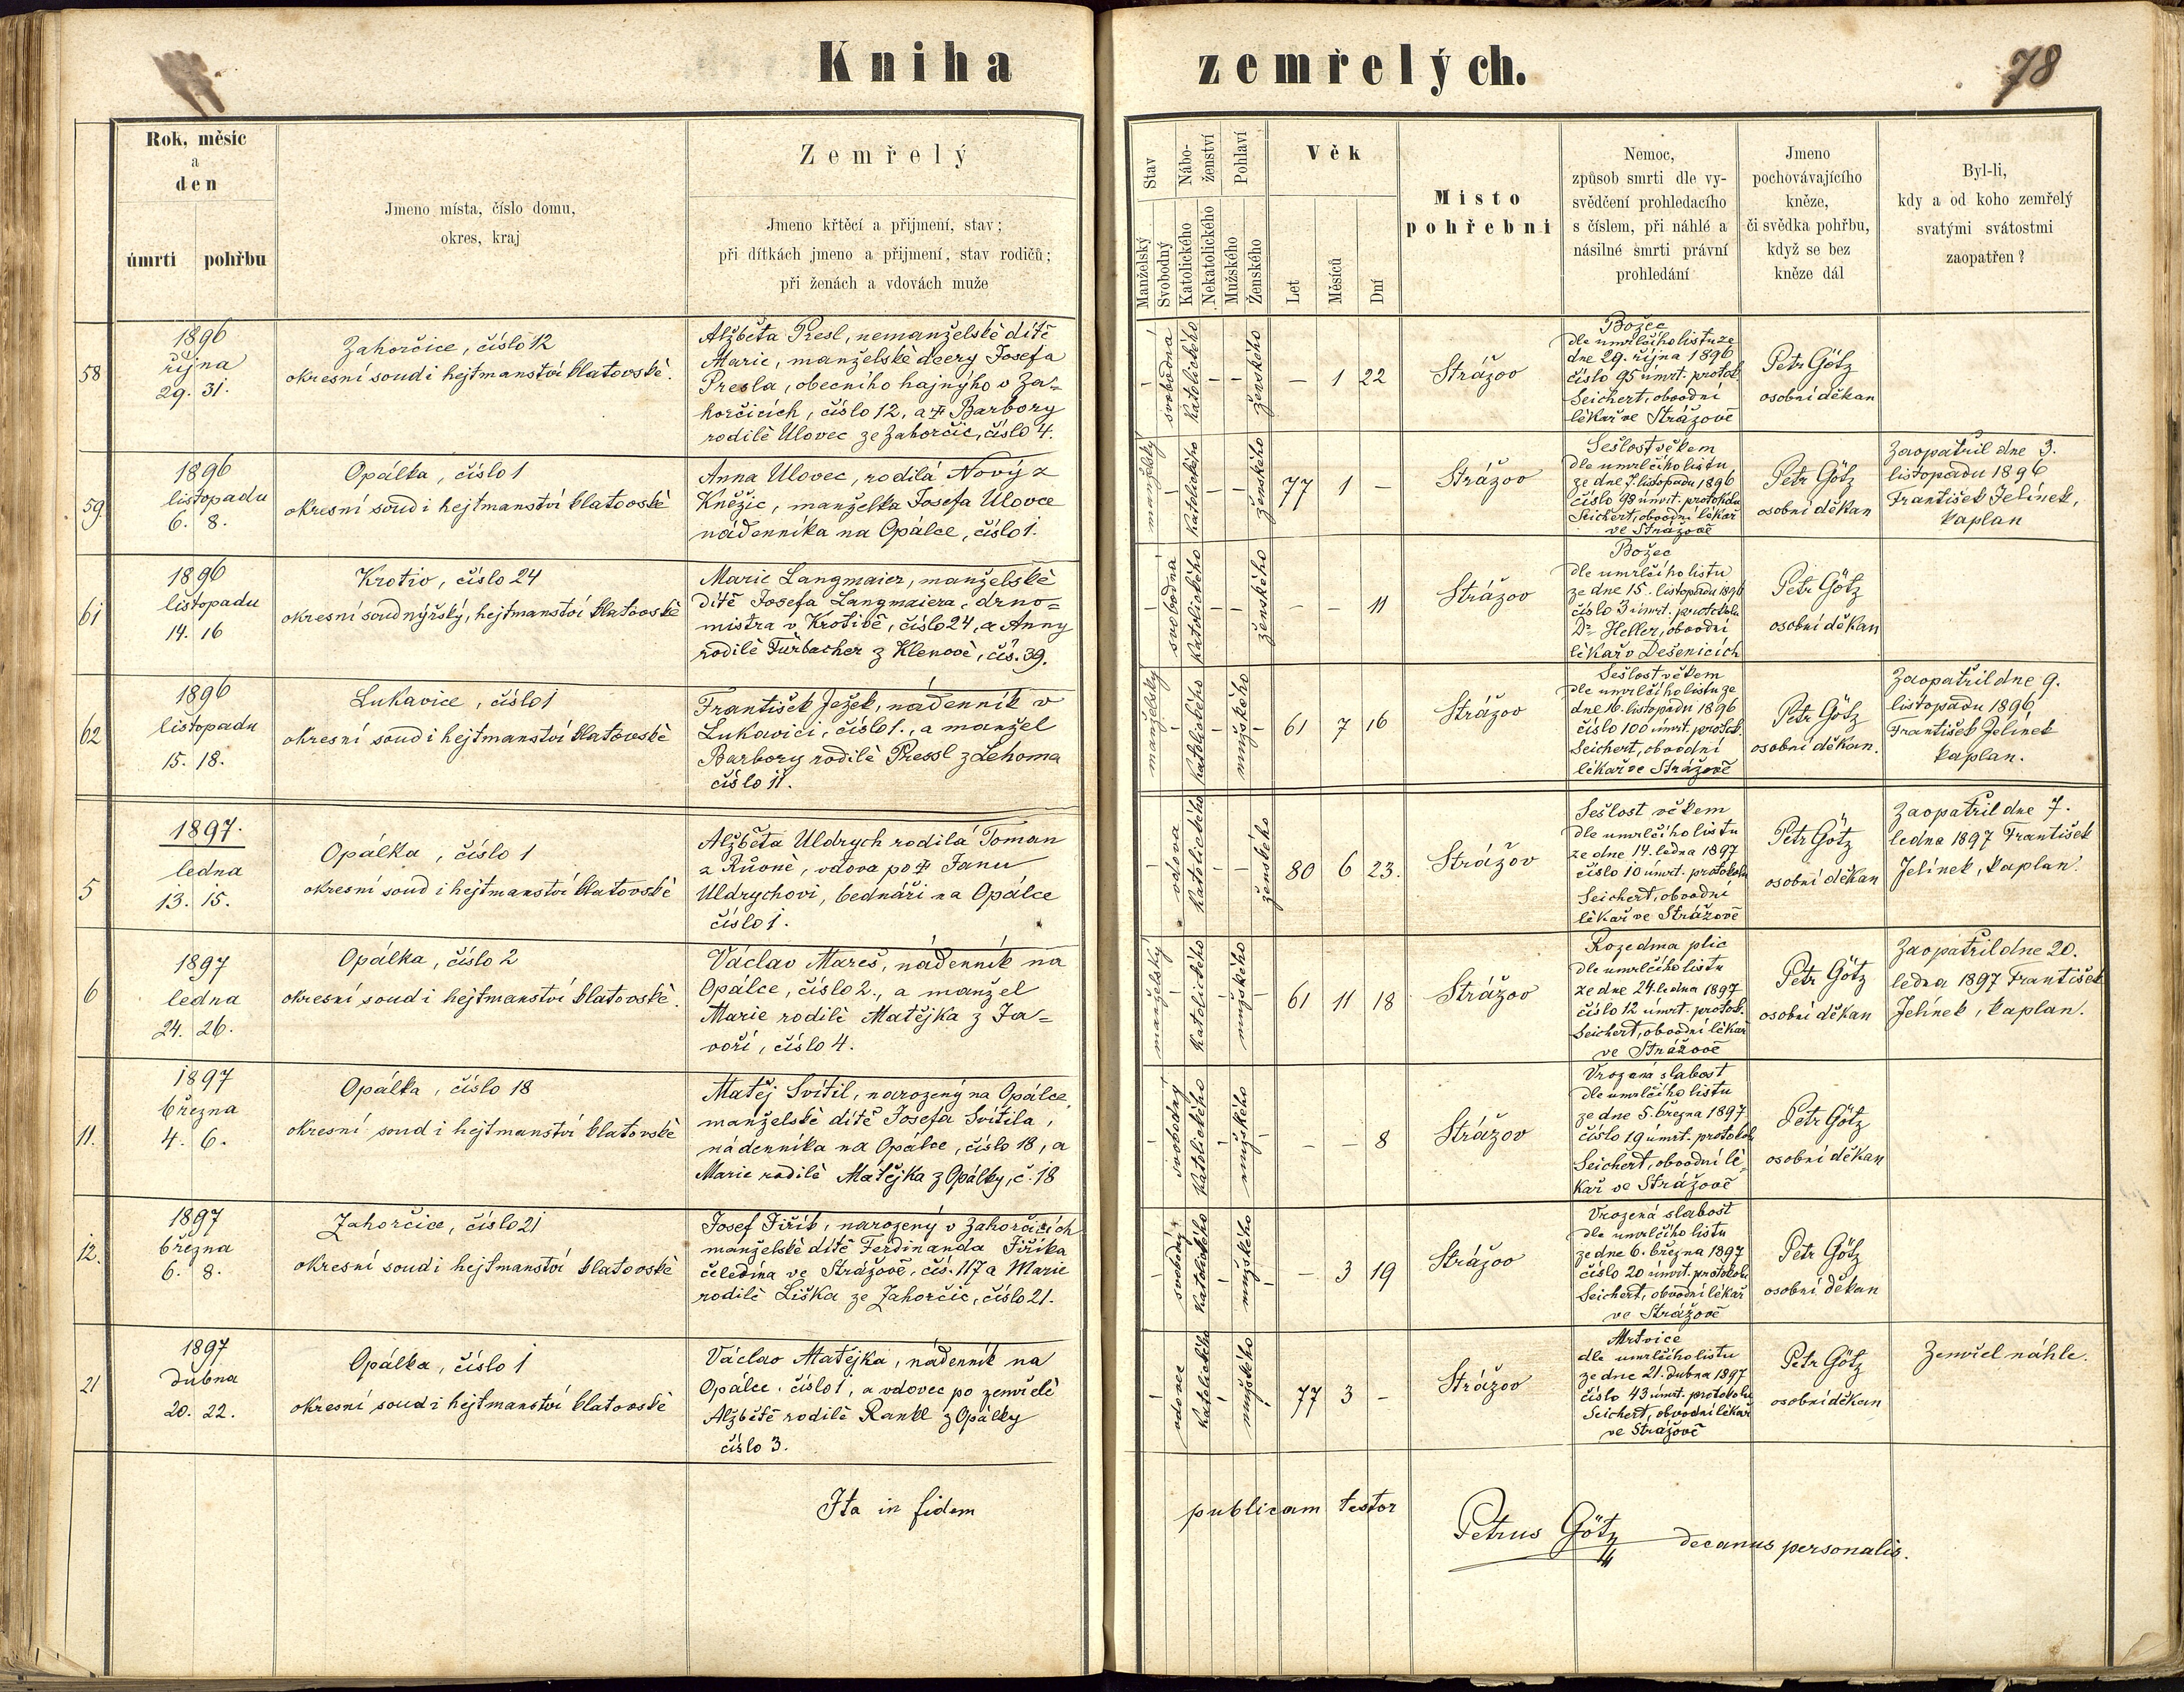 Kniha zemřelých.
78
Rok, měsíc
a
den
úmrtí pohřbu
Jmeno místa, číslo domu,
okres, kraj
Zemřelý
Jmeno křtěcí a přijmení, stav;
při dítkách jmeno a přijmení, stav rodičů;
při ženách a vdovách muže
Stav
Manželský
Svobodný
Nábo-
ženství
Katolického
Nekatolického
Pohlaví
Mužského
Ženského
Věk
Let
Měsíců
Dní
Místo
pohřební
Nemoc,
způsob smrti dle vy-
svědčení prohledacího
s číslem, při náhlé a
násilné smrti právní
prohledání
Jmeno
pochovávajícího
kněze,
či svědka pohřbu,
když se bez
kněze dál
Byl-li,
kdy a od koho zemřelý
svatými svátostmi
zaopatřen?
58
1896
října
29. 31.
Zahorčice, číslo 12
okresní soud i hejtmanství klatovské.
Alžběta Presl, nemanželské dítě
Marie, manželské dcery Josefa
Presla, obecního hajného v Za-
horčicích, číslo 12, a ✝ Barbory
rodilé Ulovec ze Zahorčic, číslo 4.
–
svobodná
katolického
–
–
ženského
– 1 22
Strážov
Božec
dle umrlčího listu ze
dne 29. října 1896
číslo 95 úmrt. protok.
Seichert, obvodní
lékař ve Strážově
Petr Götz
osobní děkan
59
1896
listopadu
6. 8.
Opálka, číslo 1
okresní soud i hejtmanství klatovské
Anna Ulovec, rodilá Nový z
Kněžic, manželka Josefa Ulovce
nádenníka na Opálce, číslo 1.
manželský
–
katolického
–
–
ženského
77 1 –
Strážov
Sešlost věkem
dle umrlčího listu
ze dne 7. listopadu 1896
číslo 98 úmrt. protokolu
Seichert, obvodní lékař
ve Strážově
Petr Götz
osobní děkan
Zaopatřil dne 3.
listopadu 1896
František Jelínek,
kaplan
61
1896
listopadu
14. 16
Krotiv, číslo 24
okresní soud nýrský, hejtmanství klatovské
Marie Langmaier, manželské
dítě Josefa Langmaiera, drno-
mistra v Krotivě, číslo 24, a Anny
rodilé Fürbacher z Klenové, čís. 39.
–
svobodná
katolického
–
–
ženského
– – 11
Strážov
Božec
dle umrlčího listu
ze dne 15. listopadu 1896
číslo 3 úmrt. protokolu
Dr Heller, obvodní
lékař v Dešenicích
Petr Götz
osobní děkan
62
1896
listopadu
15. 18.
Lukavice, číslo 1
okresní soud i hejtmanství klatovské
František Ježek, nádenník v
Lukavici, číslo 1., a manžel
Barbory rodilé Pressl z Lehoma
číslo 11.
manželský
–
katolického
–
mužského
–
61 7 16
Strážov
Sešlost věkem
dle umrlčího listu ze
dne 16. listopadu 1896
číslo 100 úmrt. protok.
Seichert, obvodní
lékař ve Strážově
Petr Götz
osobní děkan.
Zaopatřil dne 9.
listopadu 1896
František Jelínek
kaplan.
5
1897.
ledna
13. 15.
Opálka, číslo 1
okresní soud i hejtmanství klatovské
Alžběta Uldrych rodilá Toman
z Rovné, vdova po ✝ Janu
Uldrychovi, bednáři na Opálce
číslo 1.
–
vdova
katolického
–
–
ženského
80 6 23.
Strážov
Sešlost věkem
dle umrlčího listu
ze dne 14. ledna 1897
číslo 10 úmrt. protokolu
Seichert, obvodní
lékař ve Strážově
Petr Götz
osobní děkan
Zaopatřil dne 7.
ledna 1897 František
Jelínek, kaplan.
6
1897
ledna
24. 26.
Opálka, číslo 2
okresní soud i hejtmanství klatovské.
Václav Mareš, nádenník na
Opálce, číslo 2., a manžel
Marie rodilé Matějka z Ja-
voří, číslo 4.
manželský
–
katolického
–
mužského
–
61 11 18
Strážov
Rozedma plic
dle umrlčího listu
ze dne 24. ledna 1897
číslo 12 úmrt. protok.
Seichert, obvodní lékař
ve Strážově
Petr Götz
osobní děkan
Zaopatřil dne 20.
ledna 1897 František
Jelínek, kaplan.
11.
1897
března
4. 6.
Opálka, číslo 18
okresní soud i hejtmanství klatovské
Matěj Svítil, narozený na Opálce,
manželské dítě Josefa Svítila,
nádenníka na Opálce, číslo 18, a
Marie rodilé Matějka z Opálky, č. 18
–
svobodný
katolického
–
mužského
–
– – 8
Strážov
Vrozená slabost
dle umrlčího listu
ze dne 5. března 1897
číslo 19 úmrt. protokol
Seichert, obvodní lé-
kař ve Strážově
Petr Götz
osobní děkan
12.
1897
března
6. 8.
Zahorčice, číslo 21
okresní soud i hejtmanství klatovské
Josef Jiřík, narozený v Zahorčicích
manželské dítě Ferdinanda Jiříka
čeledína ve Strážově, čís. 117 a Marie
rodilé Liška ze Zahorčic, číslo 21.
–
svobodný
katolického
–
mužského
–
– 3 19
Strážov
Vrozená slabost
dle umrlčího listu
ze dne 6. března 1897
číslo 20 úmrt. protokolu
Seichert, obvodní lékař
ve Strážově
Petr Götz
osobní děkan
21
1897
dubna
20. 22.
Opálka, číslo 1
okresní soud i hejtmanství klatovské
Václav Matějka, nádenník na
Opálce, číslo 1, a vdovec po zemřelé
Alžbětě rodilé Rankl z Opálky
číslo 3.
–
vdovec
katolického
–
mužského
–
77 3 –
Strážov
Mrtvice
dle umrlčího listu
ze dne 21. dubna 1897
číslo 43 úmrt. protokolu
Seichert, obvodní lékař
ve Strážově
Petr Götz
osobní děkan
Zemřel náhle.
Ita in fidem publicam testor
Petrus Götz decanus personalis.